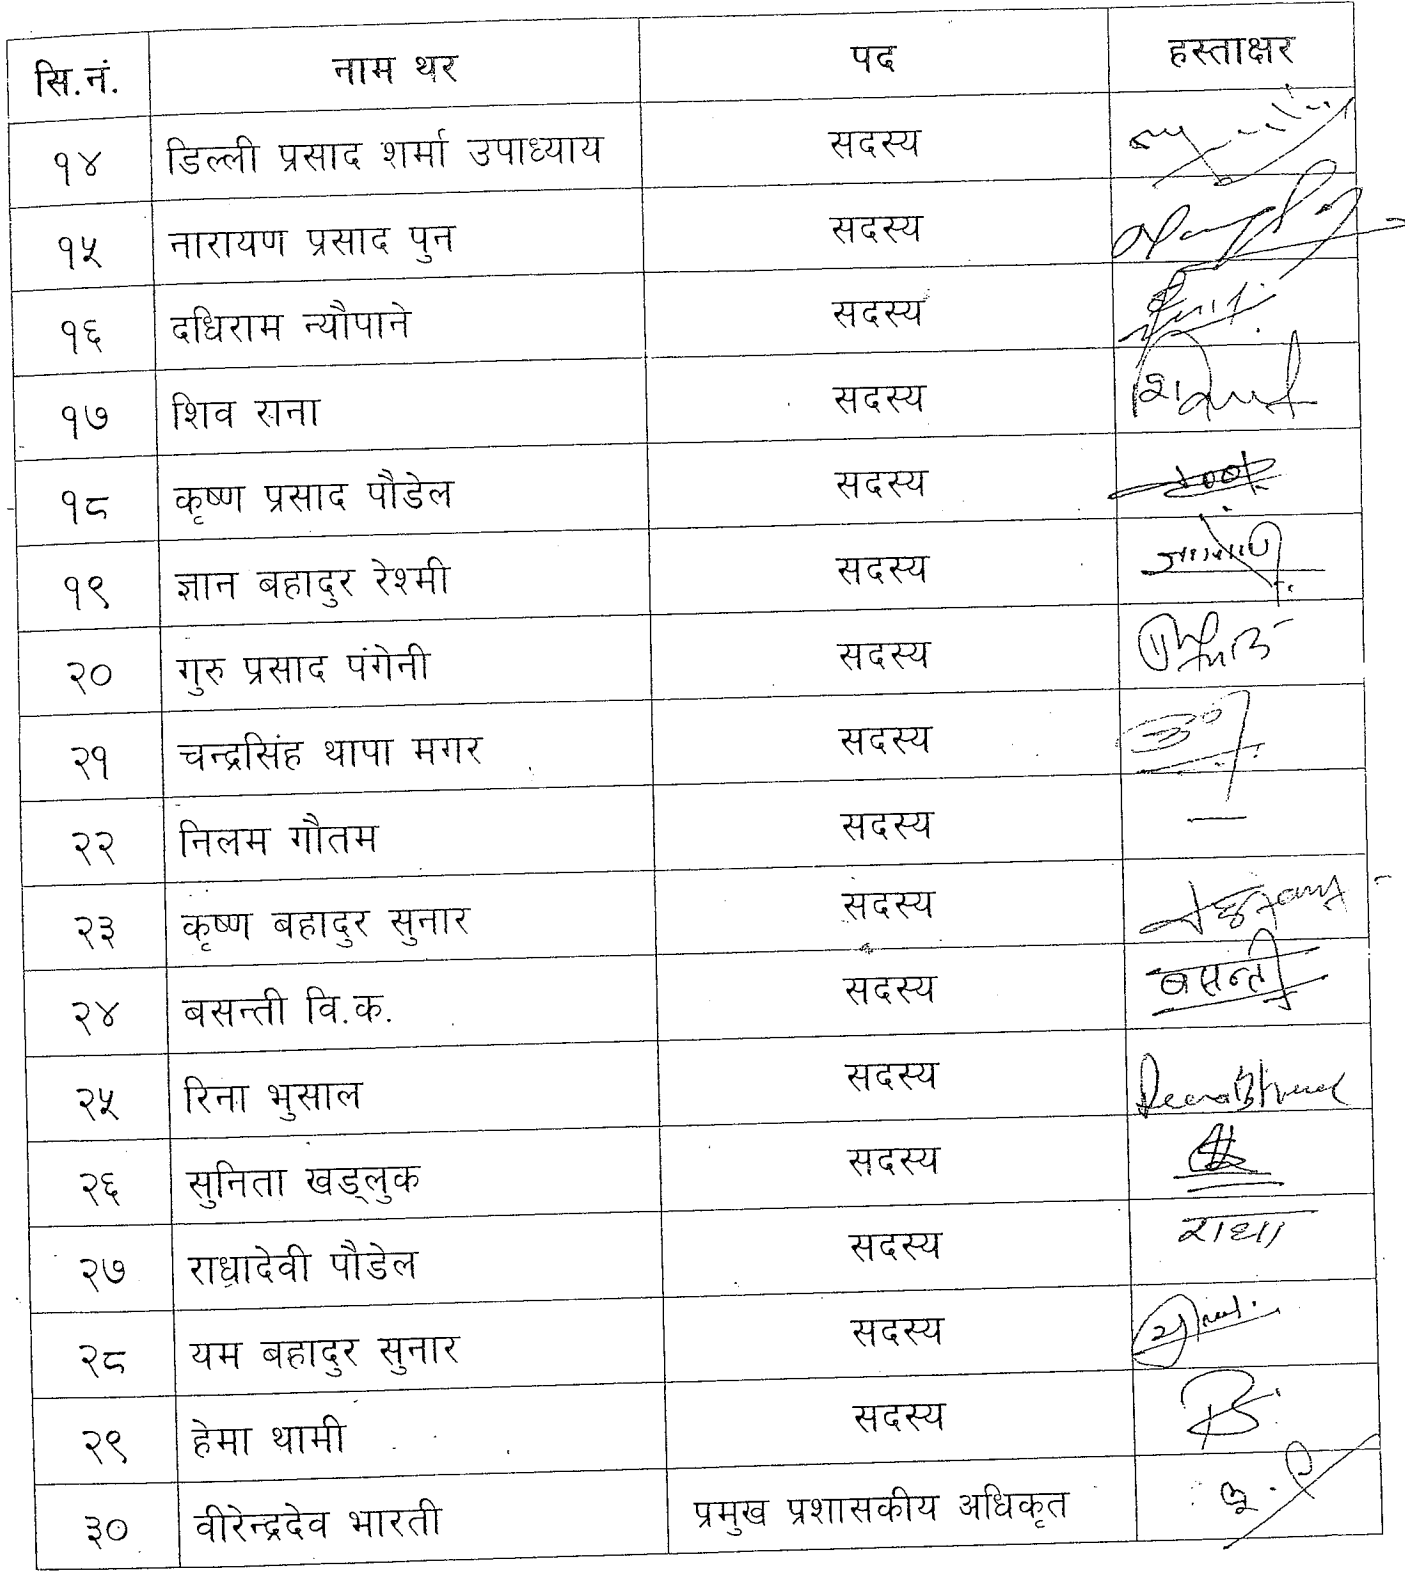 सि.नं. नाम थर पद हस्ताक्षर
१४ डिल्ली प्रसाद शर्मा उपाध्याय सदस्य
१५ नारायण प्रसाद पुन सदस्य
१६ दधिराम न्यौपाने सदस्य
१७ शिव राना सदस्य
१८ कृष्ण प्रसाद पौडेल सदस्य
१९ ज्ञान बहादुर रेश्मी सदस्य
२० गुरु प्रसाद पंगेनी सदस्य
२१ चन्द्रसिंह थापा मगर सदस्य
२२ निलम गौतम सदस्य —
२३ कृष्ण बहादुर सुनार सदस्य
२४ बसन्ती वि.क. सदस्य बसन्ती
२५ रिना भुसाल सदस्य
२६ सुनिता खड्लुक सदस्य
२७ राधादेवी पौडेल सदस्य राधा
२८ यम बहादुर सुनार सदस्य
२९ हेमा थामी सदस्य
३० वीरेन्द्रदेव भारती प्रमुख प्रशासकीय अधिकृत